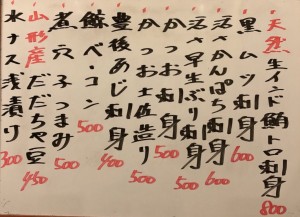 天然生インド鮪トロ刺身 800
黒ムツ刺身 600
活〆かんぱち刺身 600
活〆早生ぶり刺身 500
かつお刺身 500
かつお土佐造り 500
豊後あじ刺身 400
鯨ベーコン 500
煮穴子つまみ 500
山形産だだちゃ豆 450
水ナス浅漬り 300